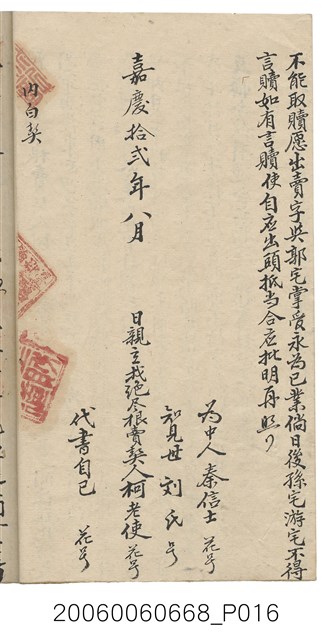 不能取贖愿出賣字與郭宅掌受永為己業倘日後孫宅游宅不得
言贖如有言贖使自應出頭抵当合应批明再照
為中人秦信士 花号
知見母 刘氏 号
嘉慶拾弍年八月 日親立找绝尽根賣契人柯老使 花号
代書自己 花号
内白契
20060060668_P016